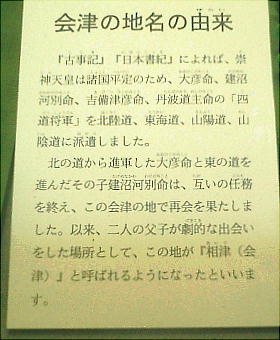 会津の地名の由来
『古事記』『日本書紀』によれば、崇
神天皇は諸国平定のため、大彦命、建沼
河別命、吉備津彦命、丹波道主命の「四
道将軍」を北陸道、東海道、山陽道、山
陰道に派遣しました。
北の道から進軍した大彦命と東の道を
進んだその子建沼河別命は、互いの任務
を終え、この会津の地で再会を果たしま
した。以来、二人の父子が劇的な出会い
をした場所として、この地が『相津（会
津）』と呼ばれるようになったといいま
す。